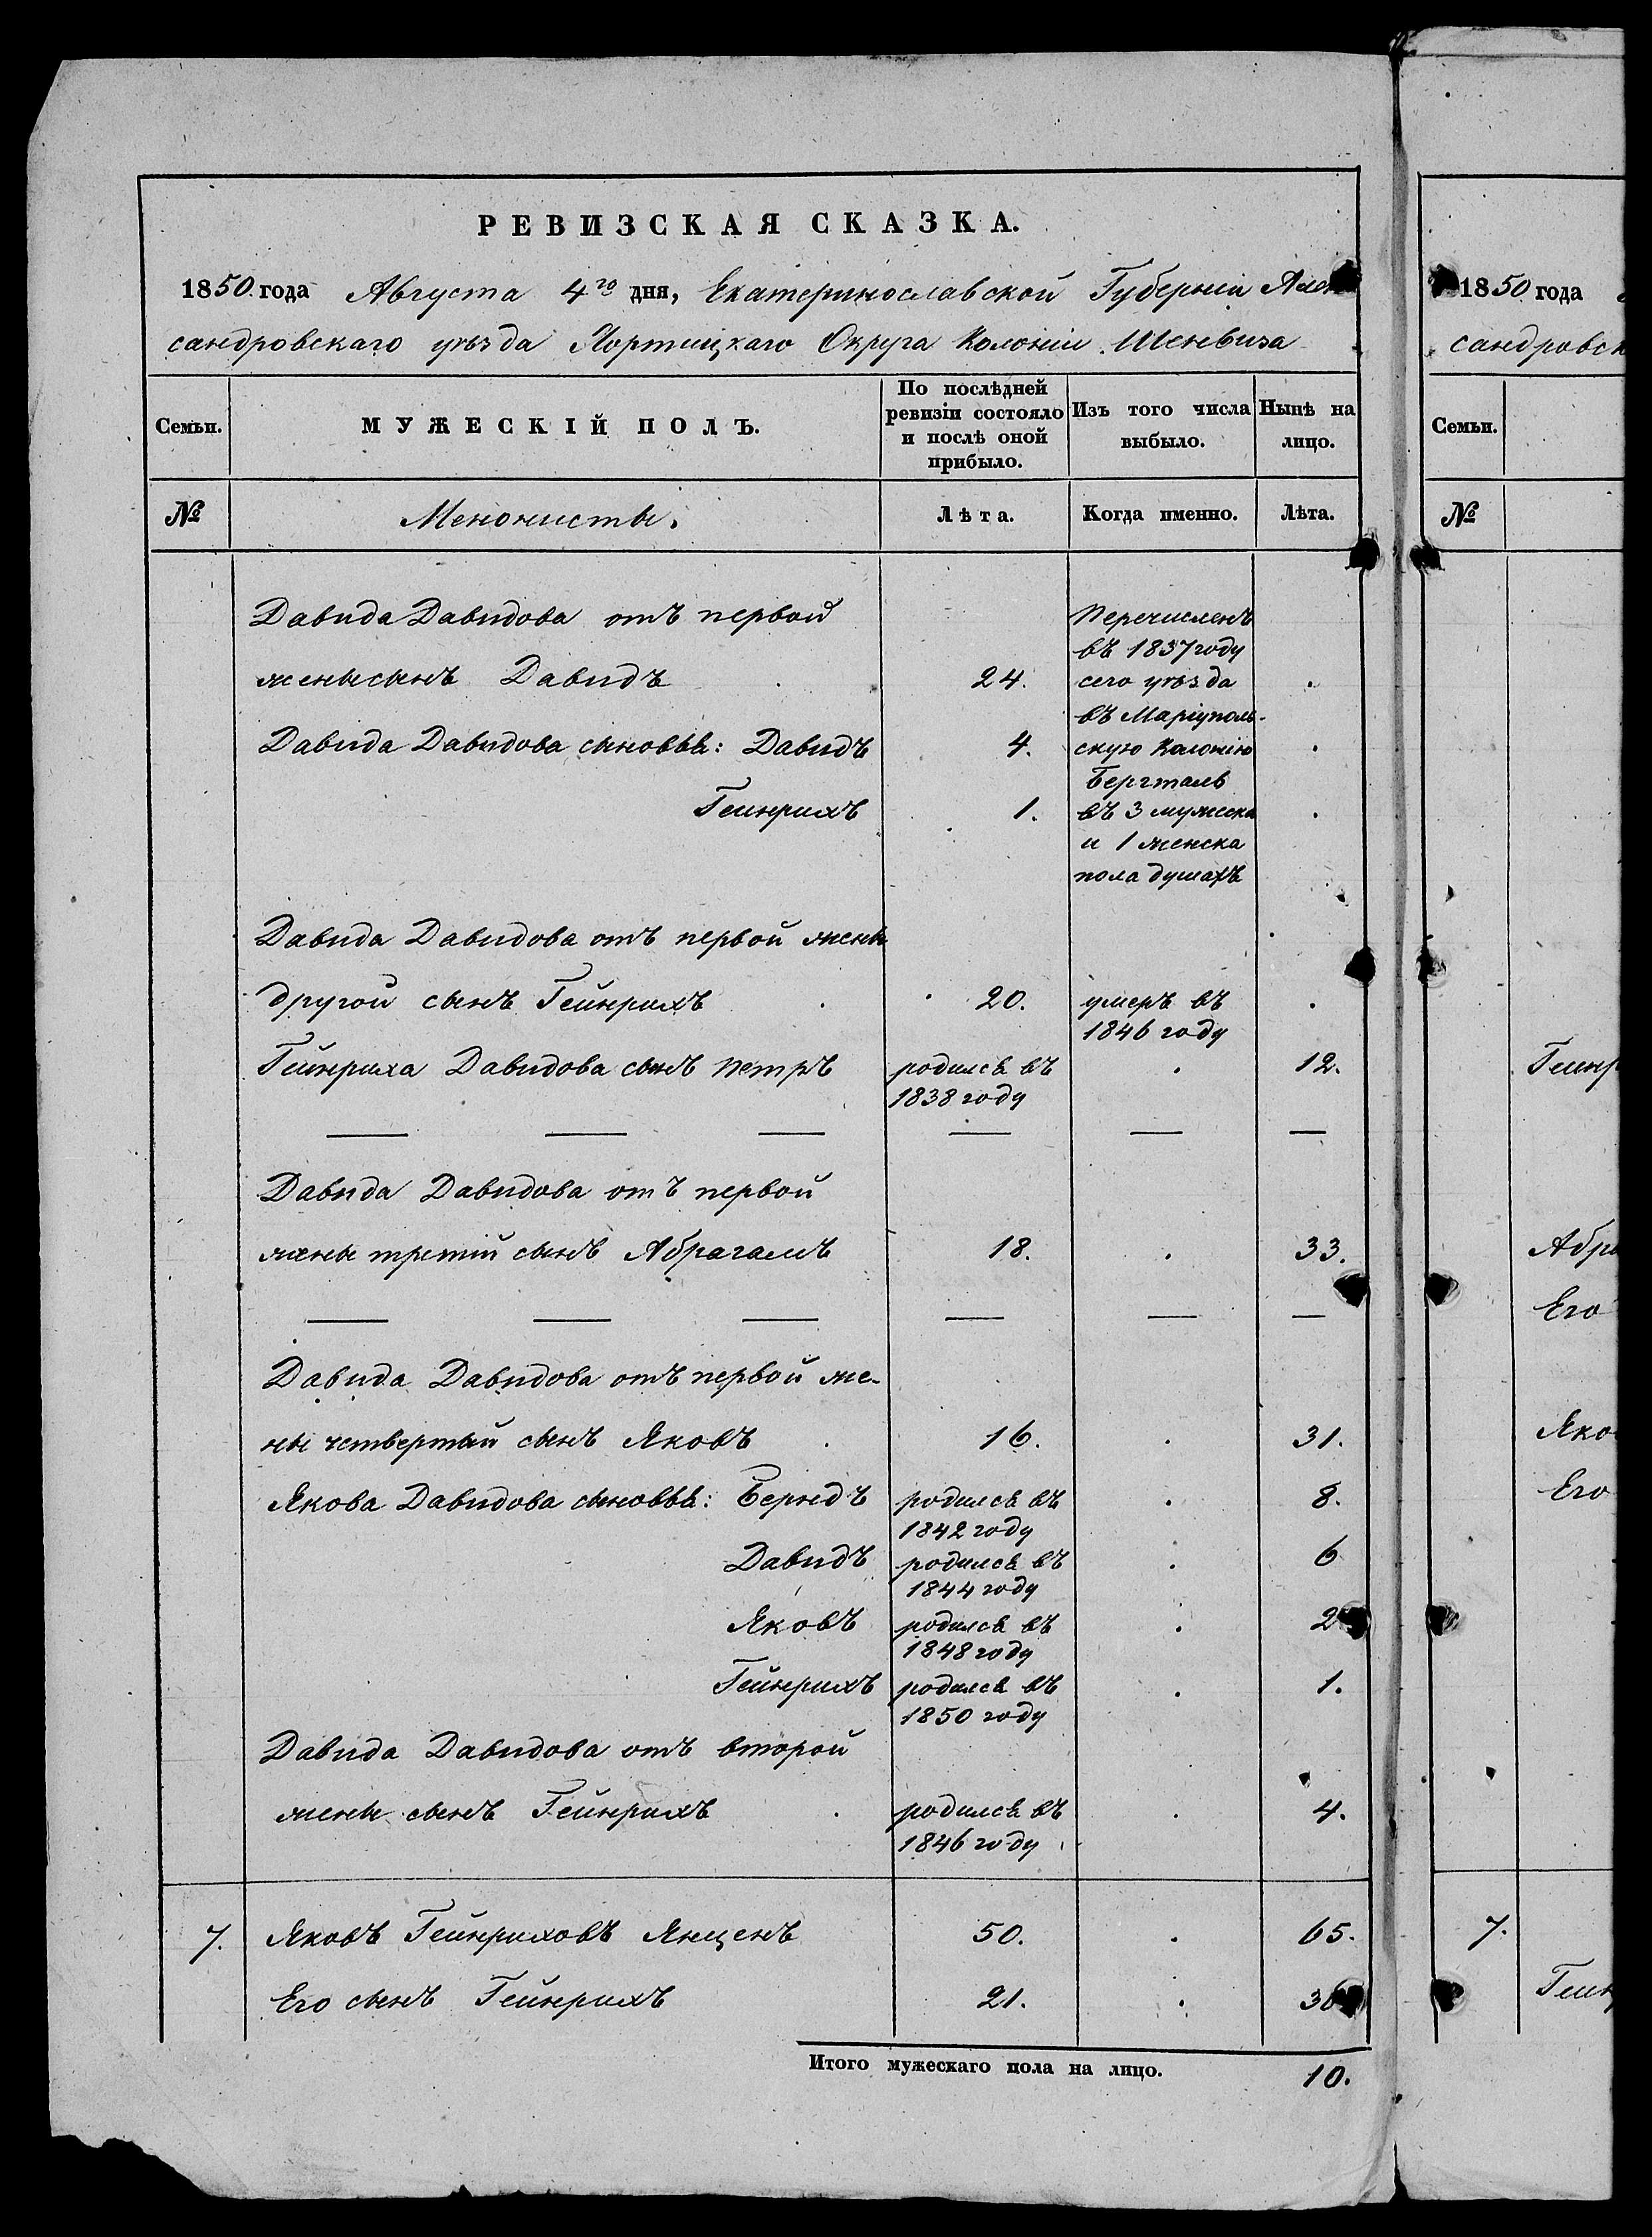 РЕВИЗСКАЯ СКАЗКА.
1850 года Августа 4го дня, Екатеринославской Губерніи Алек
сандровскаго уѣзда Хортицкаго Округа Колоніи Шенвиза
Семьи. МУЖЕСКІЙ ПОЛЪ. По послѣдней ревизіи состояло и послѣ оной прибыло. Изъ того числа выбыло. Нынѣ на лицо.
№ Менонисты. Лѣта. Когда именно. Лѣта.
Давида Давидова отъ первой
жены сынъ Давидъ 24.
Давида Давидова сыновья: Давидъ 4.
Гейнрихъ 1.
Перечисленъ
въ 1837 году
сего уѣзда
въ Маріуполь-
скую Колонію
Бергталь
въ 3 мужска
и 1 женска
пола душахъ
Давида Давидова отъ первой жены
другой сынъ Гейнрихъ 20. умеръ въ
1846 году
Гейнриха Давидова сынъ Петръ родился въ 12.
1838 году
Давида Давидова отъ первой
жены третій сынъ Абрагамъ 18. 33.
Давида Давидова отъ первой же-
ны четвертый сынъ Яковъ 16. 31.
Якова Давидова сыновья: Берндъ родился въ 8.
1842 году
Давидъ родился въ 6
1844 году
Яковъ родился въ 2
1848 году
Гейнрихъ родился въ 1.
1850 году
Давида Давидова отъ второй
жены сынъ Гейнрихъ родился въ 4.
1846 году
7. Яковъ Гейнриховъ Янценъ 50. 65.
Его сынъ Гейнрихъ 21. 36
Итого мужескаго пола на лицо. 10.
1850 года
сандровск
Семьи.
№
Гейнр
Абра
Его
Яко
Его
7.
Гейн